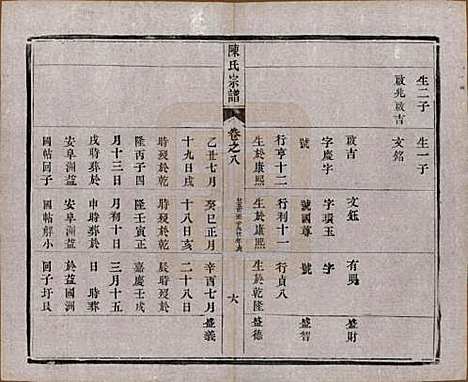 生二子
生一子
啟兆啟吉
文銘
啟吉
文鈺
有馬
盛財
字慶字
字璜玉
字
行亨十二
號國尊
號
盛智
行利十一
行貞八
生於康熙
生於康熙
生於乾隆
盛德
陳氏宗譜
卷之八
六
乙丑七月
癸巳正月
辛酉七月
盛義
十九日戌
十八日亥
二十八日
時歿於乾
時歿於乾
時歿於
隆丙子四
隆壬寅正
嘉慶壬戌
月十三日
月初十日
三月十五
戌時葬於
申時葬於
日時葬
安阜洲益
安阜洲益
於益國洲
國帖回子
國帖解小
回子圩艮